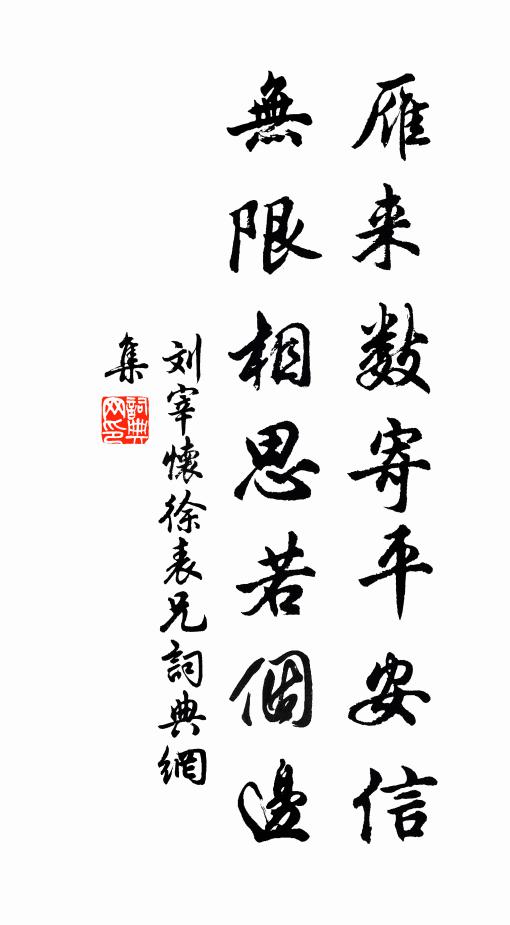 雁来数寄平安信
無限相思若個邊
刘宰懷徐表兄詞典網
集
詞典
网印